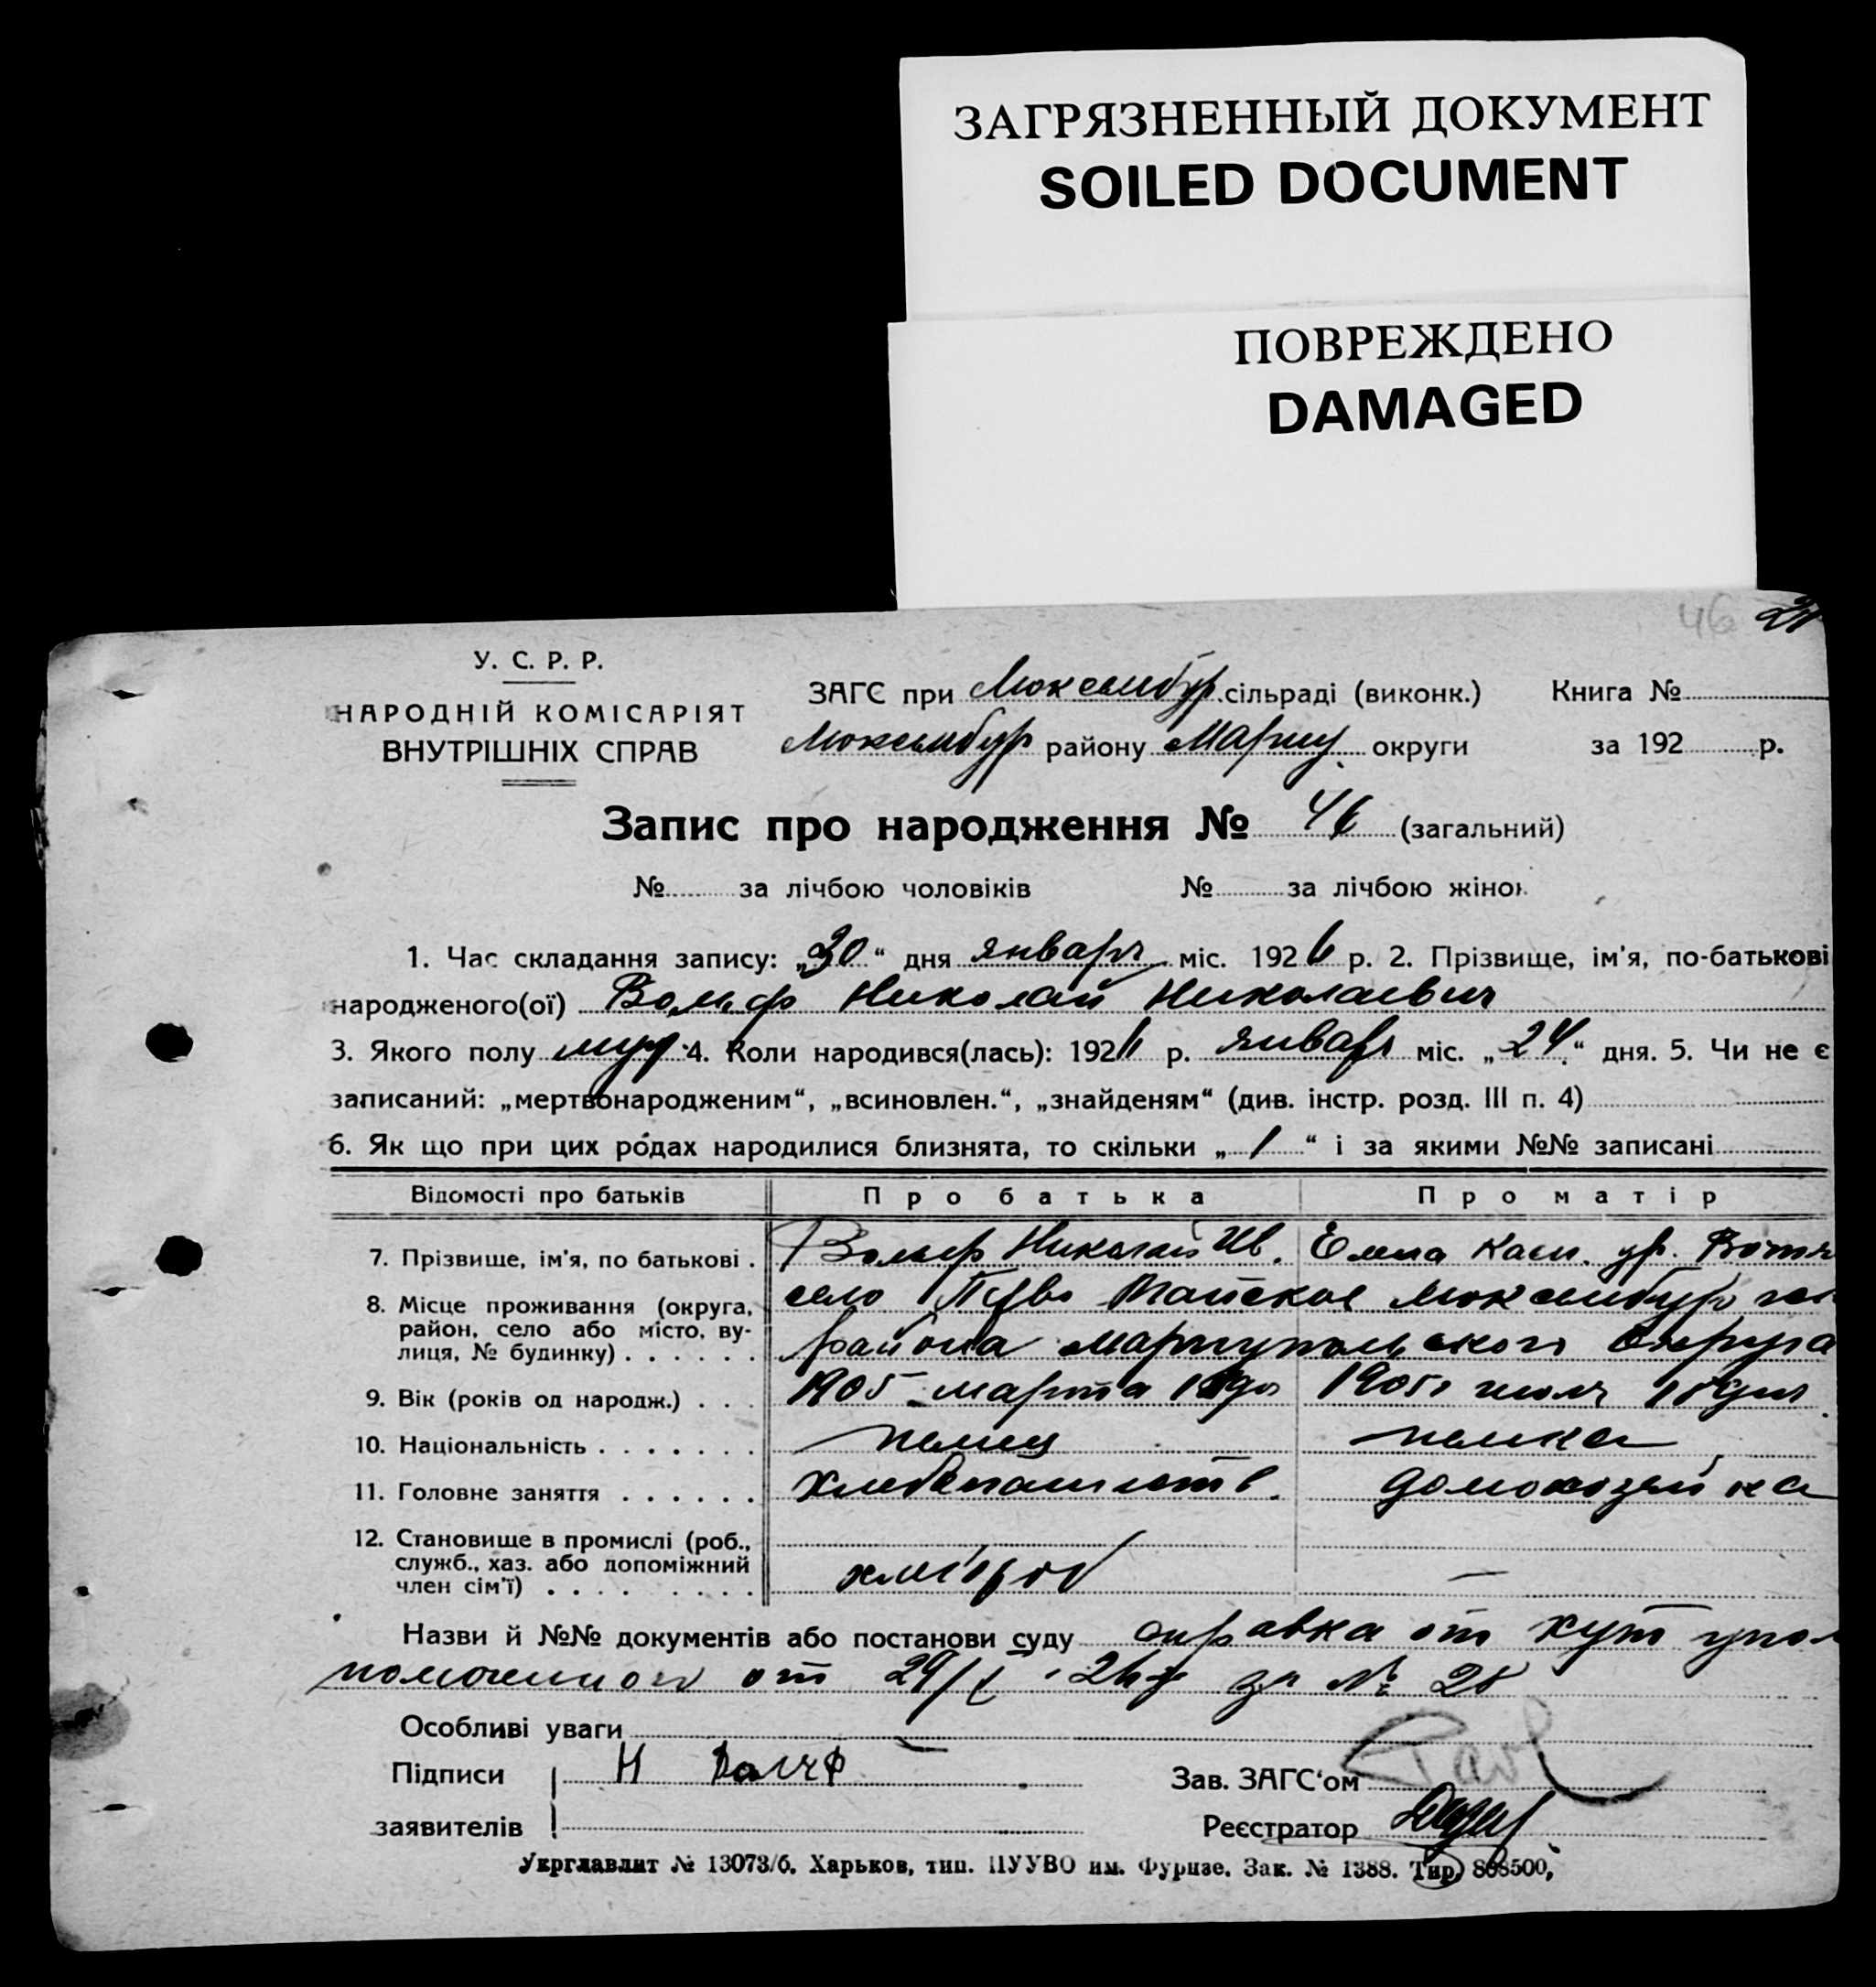 ЗАГРЯЗНЕННЫЙ ДОКУМЕНТ
SOILED DOCUMENT
ПОВРЕЖДЕНО
DAMAGED
46
У. С. Р. Р.
НАРОДНІЙ КОМІСАРІЯТ
ВНУТРІШНІХ СПРАВ
ЗАГС при Люксембур. сільраді (виконк.) Книга №
Люксембур району Мариу. округи за 192 р.
Запис про народження № 46 (загальний)
№ за лічбою чоловіків № за лічбою жінок
1. Час складання запису: „30“ дня января міс. 1926 р. 2. Прізвище, ім'я, по-батькові
народженого(ої) Вольф Николай Николаевич
3. Якого полу муж. 4. Коли народився(лась): 1926 р. января міс. „24.“ дня. 5. Чи не є
записаний: „мертвонародженим“, „всиновлен.“, „знайденям“ (див. інстр. розд. III п. 4)
6. Як що при цих родах народилися близнята, то скільки „1“ і за якими №№ записані
Відомості про батьків Про батька Про матір
7. Прізвище, ім'я, по батькові . Вольф Николай Ив. Емма ур.
8. Місце проживання (округа, село Майское Люксембур
район, село або місто, ву- района Мариупольского Округа
лиця, № будинку) . . . . . .
9. Вік (років од народж.) . . . 1905 марта 1905 июля 18 дня
10. Національність . . . . . . . немец немка
11. Головне заняття . . . . . . хлебопашеств. домохозяйка
12. Становище в промислі (роб.,
служб., хаз. або допоміжний хлібороб —
член сім'ї) . . . . . . . . .
Назви й №№ документів або постанови суду справка от хут упол
номоченного от 29/I 26 г за № 28
Особливі уваги —
Підписи Н Вольф Зав. ЗАГС'ом
заявителів Реєстратор
Укрглавлит № 13073/б. Харьков, тип. ПУУВО им. Фрунзе. Зак. № 1388. Тир. 808500,